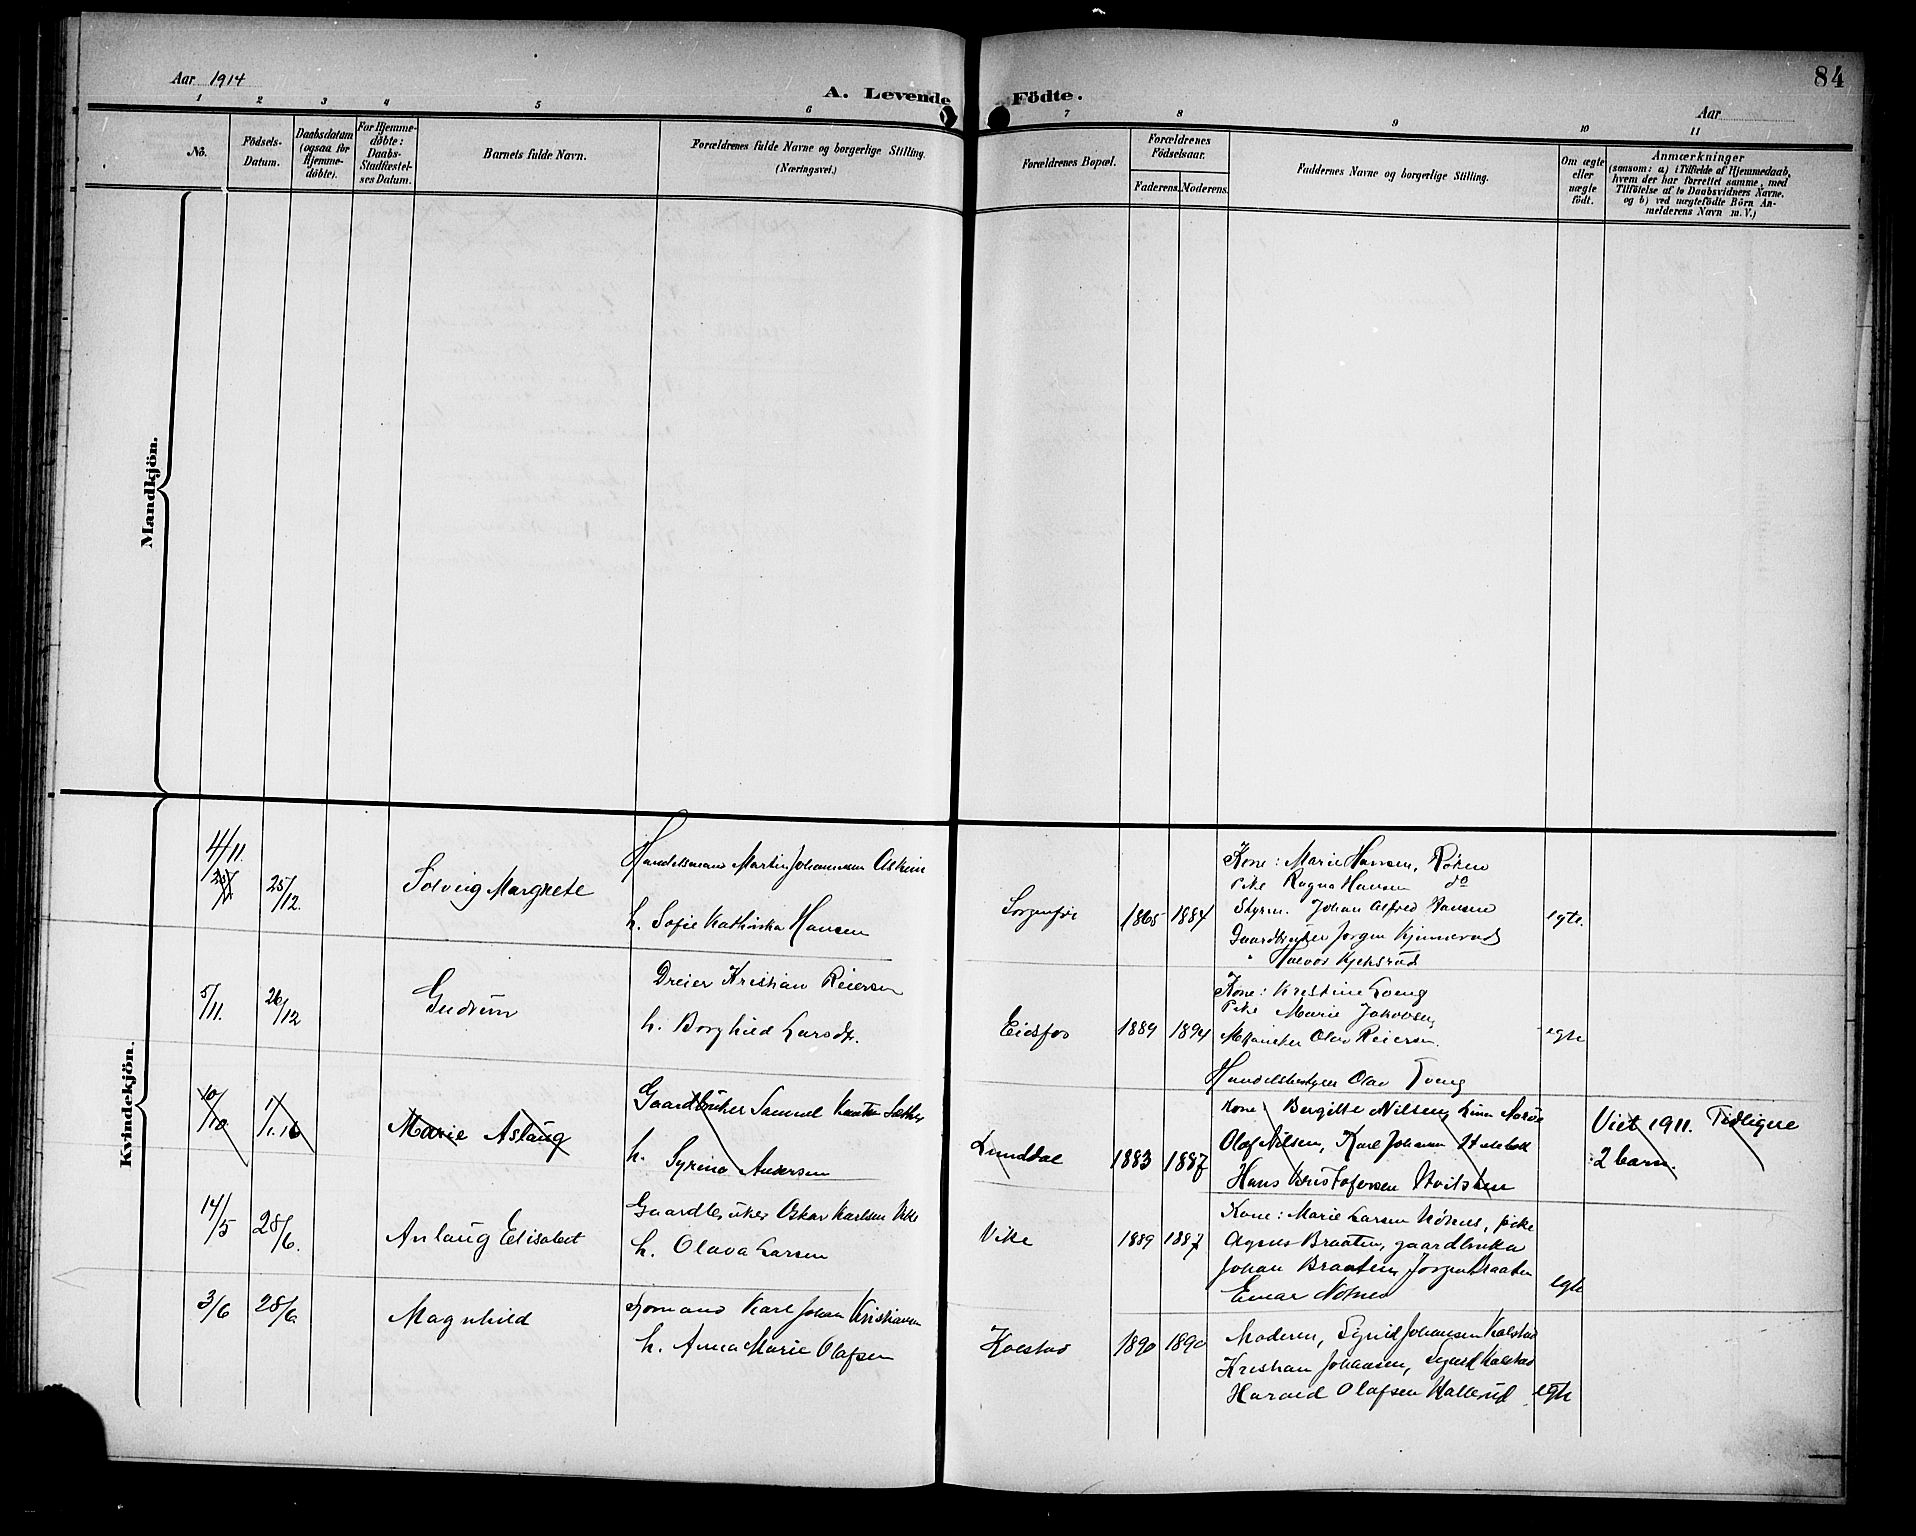 Aar 1914
A. Levende Födte.
Aar
84
1 2 3 4 5 6 7 8 9 10 11
Nö.
Födsels-
Datum.
Daabsdatum
(ogsaa for
Hjemme-
döbte).
For Hjemme-
döbte:
Daabs-
Stadfæstel-
ses Datum.
Barnets fulde Navn.
Forældrenes fulde Navne og borgerlige Stilling.
(Næringsvei.)
Forældrenes Bopæl.
Forældrenes
Födselsaar.
Faderens. Moderens.
Faddernes Navne og borgerlige Stilling.
Om ægte
eller
uægte
födt.
Anmærkninger
(saasom: a) i Tilfælde af Hjemmedaab,
hvem der har forrettet samme, med
Tilföielse af to Daabsvidners Navne.
og b) ved uægtefödte Börn An-
melderens Navn m. V.)
Mandkjön.
Kvindekjön.
4/11.
25/12.
Solveig Margrete
Handelsmand Martin Johannessen Askim
h. Sofie Kathinka Hansen
Sorgenfri
1865 1884
Kone: Marie Hansen, Röken
Pike Ragna Hansen do
Styrm. Johan Alfred Hansen
Gaardbruker Jorgen
" Halvor
egte.
5/11.
26/12
Gudrun
Dreier Kristian Reiersen
h. Borghild Larsdt.
Eidsfos
1889 1894
Kone: Kristine Tveng
Pike Marie Jakobsen
Olav Reiersen.
Handelsbestyrer Olav Tveng
egte
10/10
1/1.16
Marie Aslaug
Gaardbruker Samuel
h. Syrina Andersen
Lunddal
1883 1887
Kone Bergitte Nilsen,
Olaf Nilsen, Karl Johan
Hans Kristofersen
Viet 1911. Tidligere
2 barn.
14/5
28/6.
Anlaug Elisabet
Gaardbruker Oskar Karlsen Vike
h. Olava Larsen
Vike
1889 1887
Kone: Marie Larsen, pike
Agnes Braaten, gaardbruker
Johan Braaten, Jorgen Braaten
Einar
egte
3/6
28/6
Magnhild
Karl Johan Kristiansen
h. Anna Marie Olafsen
Kolstad
1890 1890
Moderen, Sigrid Johansen Kolstad
Kristian Johansen, Sigurd Kolstad
Harald Olafsen Hallerud
egte